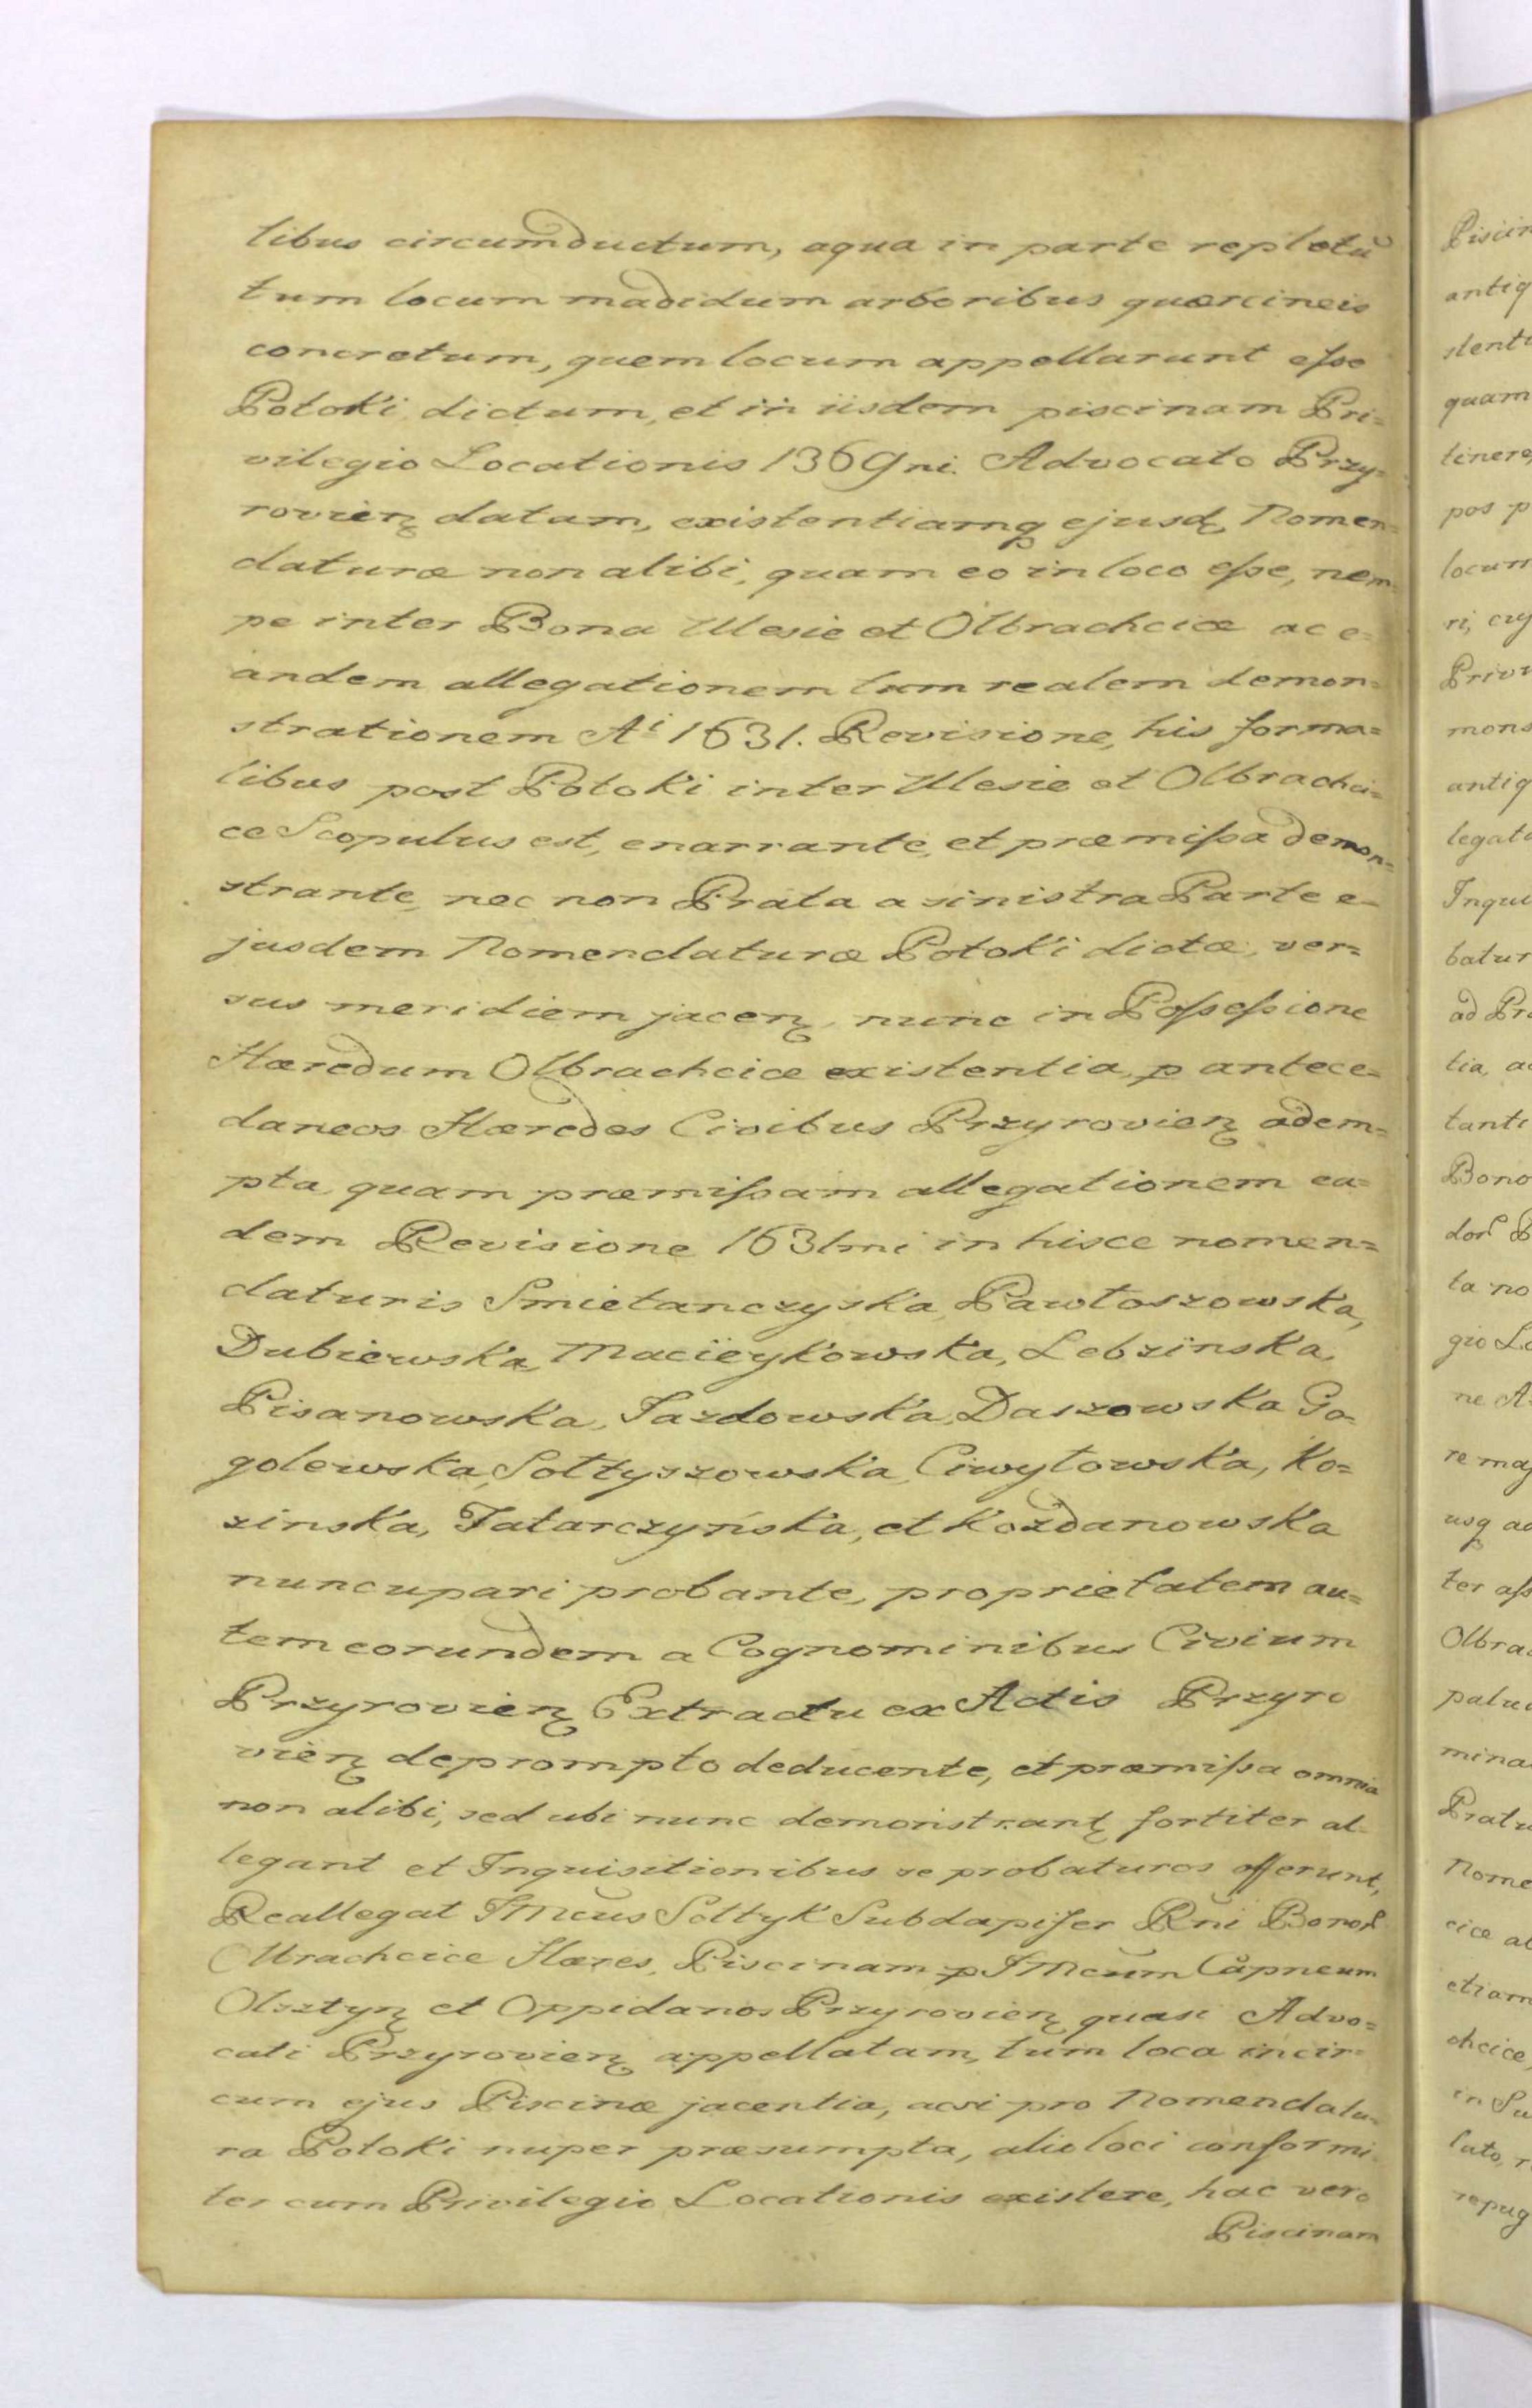 libus circumductum, aqua in parte repletũ
tum locum madidum arboribus quercineis
concretum, quem locum appellarunt esse
Potoki dictum, et in iisdem piscinam Pri=
vilegio Locationis 1369ni. Advocato Przy=
rovien datam, existentiamq ejusd Nomen=
claturæ non alibi, quam eo in loco esse, nem=
pe inter Bona Ulesie et Olbrachcice ac e=
andem allegationem tum realem demon=
strationem Ai 1631. Revisione, his forma=
libus post Potoki inter Ulesie et Olbrachci=
ce Scopulus est, enarrante, et præmissa demon=
strante, nec non Prata a sinistra Parte e=
jusdem Nomenclaturæ Potoki dictæ, ver=
sus meridiem jacen, nunc in Possessione
Hæredum Olbrachcice existentia, p antece=
daneos Hæredes Civibus Przyrovien adem=
pta, quam præmissam allegationem ea=
dem Revisione 1631mi in hisce nomen=
claturis Smietanczyska, Pawłoszowska,
Dubiewska, Macieykowska, Lebzinska,
Pisanowska, Jazdowska, Daszowska Go=
golewska, Sołtyszowska, Ciwytowska, Ko=
zinska, Tatarczyńska, et Kozdanowska
nuncupari probante, proprietatem au=
tem eorundem a Cognominibus Civium
Przyrovien Extractu ex Actis Przyro
vien deprompto deducente, et præmissa omnia
non alibi, sed ubi nunc demonstrant fortiter al=
legant et Inquisitionibus se probaturos offerunt,
Reallegat JMcus Sołtyk Subdapifer Rni Bonor
Olbrachcice Hæres, Piscinam p JMcum Capneum
Olsztyn et Oppidanos Przyrovien quasi Advo=
cati Przyrovien appellatam, tum loca incir=
cum ejus Piscinæ jacentia, acsi pro Nomenclatu=
ra Potoki nuper præsumpta, alio loci conformi=
ter cum Privilegio Locationis existere, hac vero
Piscinam